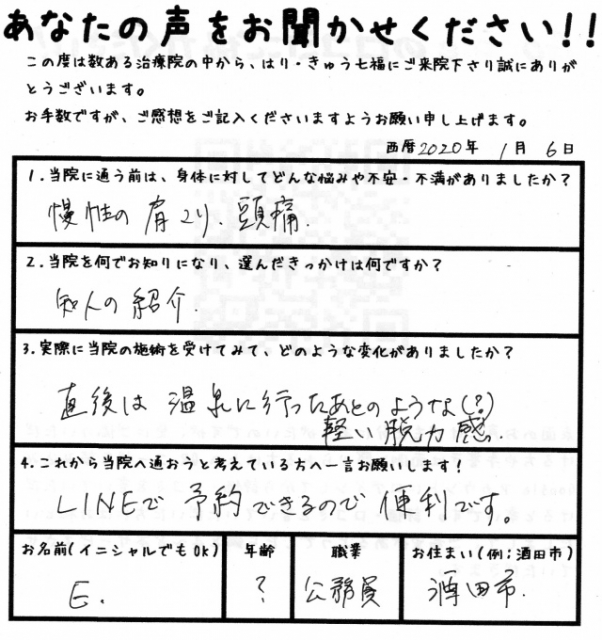 あなたの声をお聞かせください!!
この度は数ある治療院の中から、はり・きゅう七福にご来院下さり誠にありが
とうございます。
お手数ですが、ご感想をご記入くださいますようお願い申し上げます。
西暦2020年 1月 6日
1.当院に通う前は、身体に対してどんな悩みや不安・不満がありましたか?
慢性の肩こり、頭痛.
2.当院を何でお知りになり、選んだきっかけは何ですか?
知人の紹介.
3.実際に当院の施術を受けてみて、どのような変化がありましたか?
直後は温泉に行ったあとのような(?)
軽い脱力感.
4.これから当院へ通おうと考えている方へ一言お願いします!
LINEで予約できるので便利です。
お名前(イニシャルでもOK) 年齢 職業 お住まい(例:酒田市)
E. ? 公務員 酒田市.